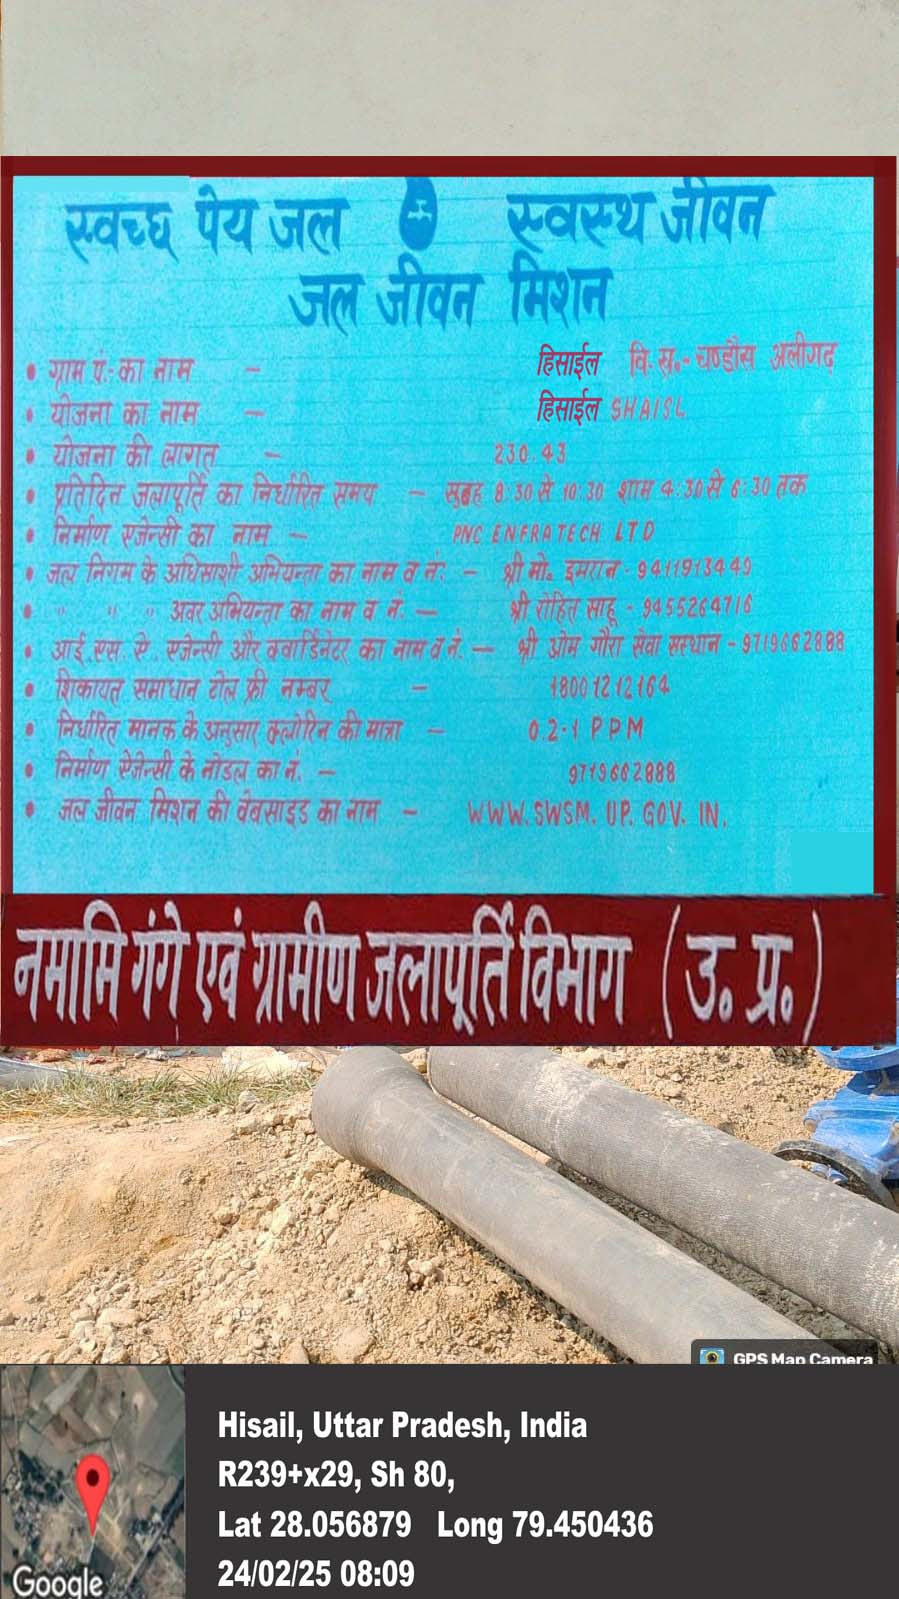 स्वच्छ पेय जल स्वस्थ जीवन
जल जीवन मिशन
• ग्राम पं.-का नाम - हिसाईल वि. ख.- चण्डौस अलीगढ़
• योजना का नाम - हिसाईल SHAISL
• योजना की लागत - 230.43
• प्रतिदिन जलापूर्ति का निर्धारित समय - सुबह 8:30 से 10:30 शाम 4:30 से 6:30 तक
• निर्माण एजेन्सी का नाम - PNC ENFRATECH LTD
• जल निगम के अधिसाशी अभियन्ता का नाम व नं. - श्री मो. इमरान - 9411913449
• " " " अवर अभियन्ता का नाम व नं. - श्री रोहित साहू - 9455264716
• आई.एस.ए. एजेन्सी और क्वार्डिनेटर का नाम व नं. - श्री ओम गौरा सेवा सस्थान - 9719662888
• शिकायत समाधान टोल फ्री नम्बर - 18001212164
• निर्धारित मानक के अनुसार क्लोरिन की मात्रा - 0.2-1 PPM
• निर्माण ऐजेन्सी के नोडल का नं. - 9719662888
• जल जीवन मिशन की वेबसाइड का नाम - WWW.SWSM.UP.GOV.IN.
नमामि गंगे एवं ग्रामीण जलापूर्ति विभाग (उ. प्र.)
GPS Map Camera
Hisail, Uttar Pradesh, India
R239+x29, Sh 80,
Lat 28.056879 Long 79.450436
24/02/25 08:09
Google